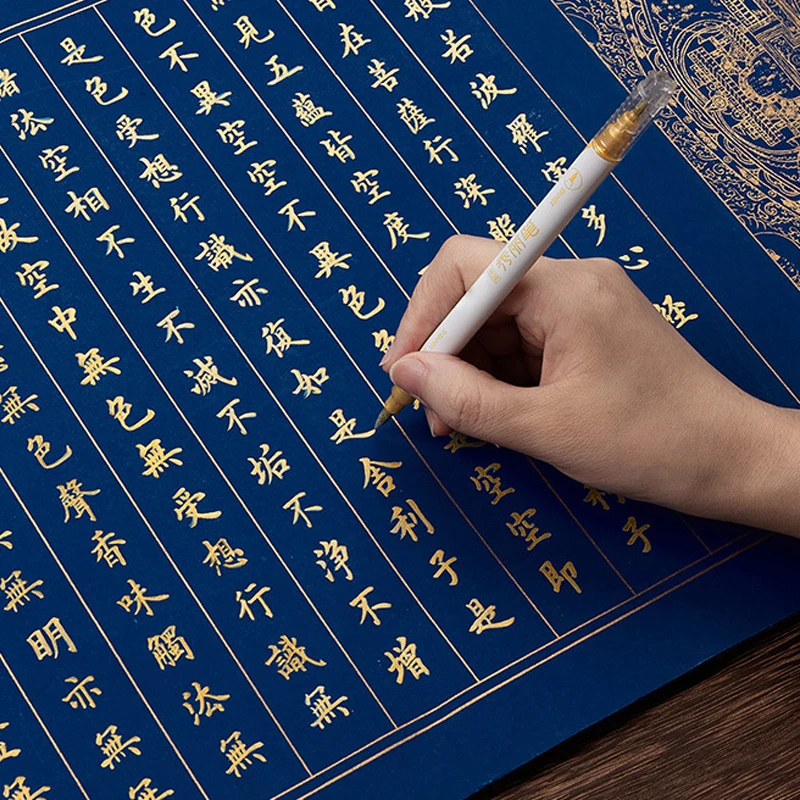 般若波羅蜜多心经
在菩薩行深般
見五蘊皆空度利子
色不異空空不異色色是空空即
是色受想行識亦復如是舍利子是
諸法空相不生不滅不垢不净不增
故空中無色無受想行識無
無色聲香味觸法無
無明亦無無
秀丽笔